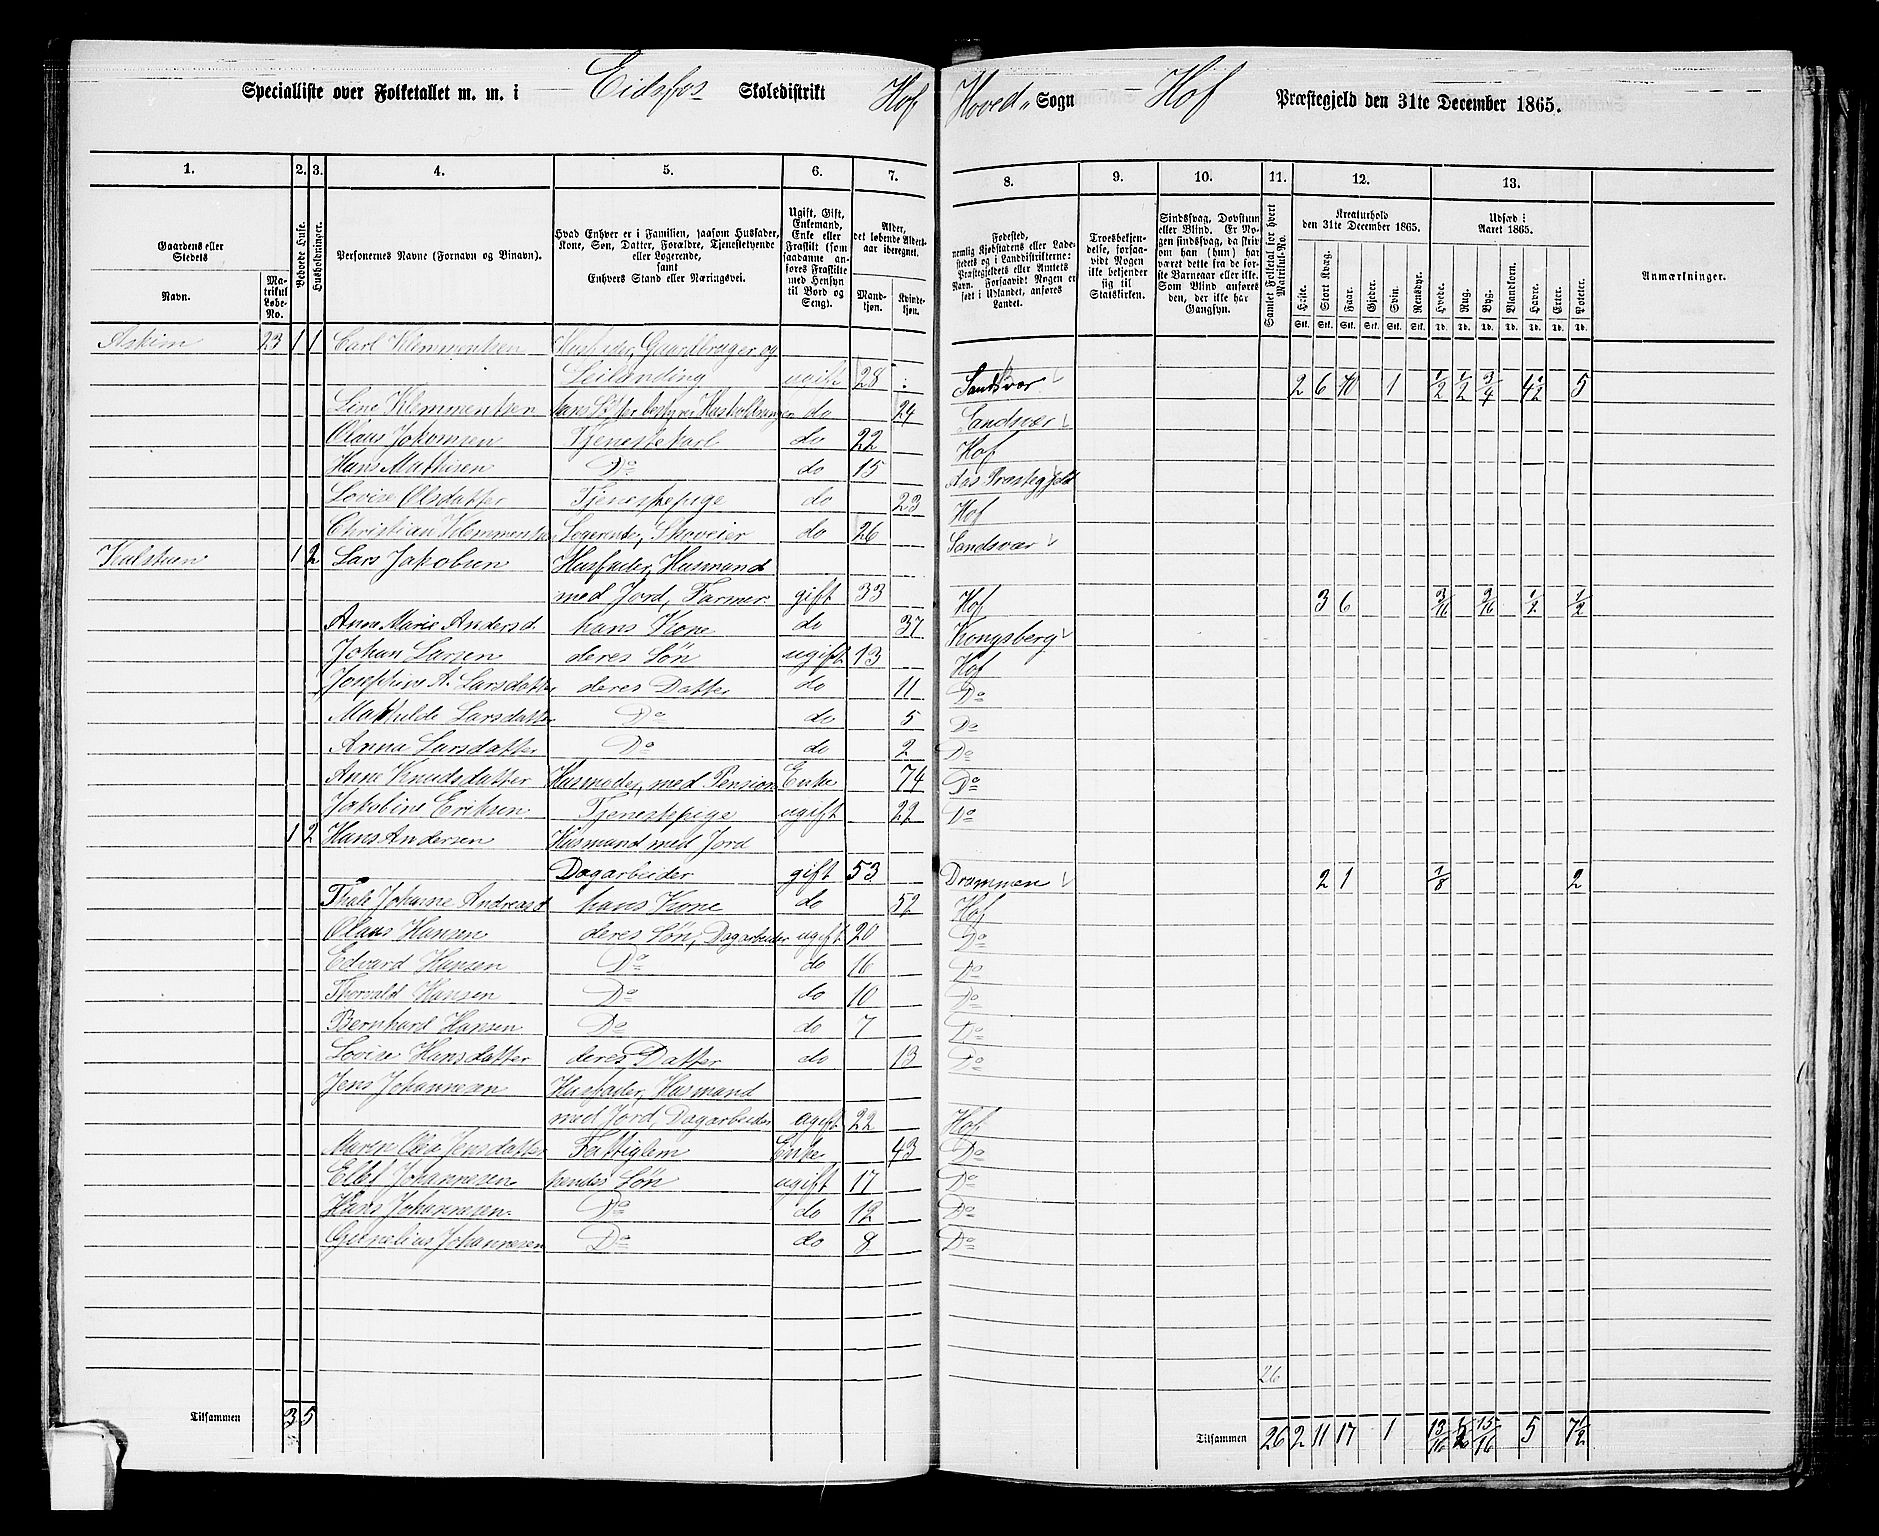 Specialliste over Folketallet m. m. i Eidsfos Skoledistrikt Hof Hoved Sogn Hof Præstegjeld den 31te December 1865.
1. 2. 3. 4. 5. 6. 7. 8. 9. 10. 11. 12. 13.
Gaardens eller Stedets
Navn.
Matrikul Løbe-No.
Beboede Huse.
Husholdninger.
Personernes Navne (Fornavn og Binavn).
Hvad Enhver er i Familien, saasom Husfader, Kone, Søn, Datter, Forældre, Tjenestetyende eller Logerende, samt Enhvers Stand eller Næringsvei.
Ugift, Gift, Enkemand, Enke eller Fraskilt (som saadanne anføres Fraskilte med Hensyn til Bord og Seng).
Alder, det løbende Aldersaar iberegnet.
Mandkjøn. Kvindekjøn.
Fødested, nemlig Kjøbstadens eller Ladestedets og i Landdistrikterne: Præstegjeldets eller Amtets Navn. Forsaavidt Nogen er født i Udlandet, anføres Landet.
Troesbekjendelse, forsaavidt Nogen ikke bekjender sig til Statskirken.
Sindssvag, Døvstum eller Blind. Er Nogen sindssvag, da skrives om han (hun) har været dette fra de første Barnaar eller ikke. Som Blind anføres den, der ikke har Gangsyn.
Samlet Folketal for hvert Matrikul-No.
Kreaturhold den 31te December 1865.
Heste. Stort Kvæg. Faar. Gjeder. Svin. Rensdyr.
Udsæd i Aaret 1865.
Hvede. Rug. Byg. Blandkorn. Havre. Erter. Poteter.
Anmærkninger.
Askim 23 1 1 Carl Klemmentsen Husfader, Gaardbruger og
Leilænding ugift 28 Sandsvær 2 6 10 1 1/2 1/2 3/4 4 1/2 5
Line Klemmentsen hans Søster bestyrer Husholdningen do 24 Sandsvær
Olaus Jakonsen Tjenestekarl do 22 Hof
Hans Mathisen Do do 15 Aas Præstegjeld
Lovise Olsdatter Tjenestepige do 23 Hof
Christian Klemmentsen Logerende, Skoveier do 26 Sandsvær
1 2 Lars Jakobsen Husfader, Husmand
med Jord, Farmer gift 33 Hof 3 6 3/16 3/16 1/2 1/2
Anne Marie Andersd. hans Kone do 37 Kongsberg
Johan Larsen deres Søn ugift 13 Hof
Josephine A. Larsdatter deres Datter do 11 Do
Mathilde Larsdatter Do do 5 Do
Anna Larsdatter Do do 2 Do
Anne Knudsdatter Husmoder, med Pension Enke 74 Do
Jakobine Eriksen Tjenestepige ugift 22 Do
1 2 Hans Andersen Husmand med Jord
Dagarbeider gift 53 Drammen 2 1 1/8 2
Thale Johanne Andreasd. hans Kone do 52 Hof
Olaus Hansen deres Søn, Dagarbeider ugift 20 Do
Edvard Hansen Do do 16 Do
Thorvald Hansen Do do 10 Do
Bernhard Hansen Do do 7 Do
Lovise Hansdatter deres Datter do 13 Do
Jens Johannesen Husfader, Husmand
med Jord, Dagarbeider ugift 22 Hof
Maren Jensdatter Fattiglem Enke 43 Do
Johannesen hendes Søn ugift 17 Do
Hans Johannesen Do do 12 Do
Johannesen Do do 8 Do
26
Tilsammen 3 5
Tilsammen 26 2 11 17 1 13/16 15/16 5 7 1/2